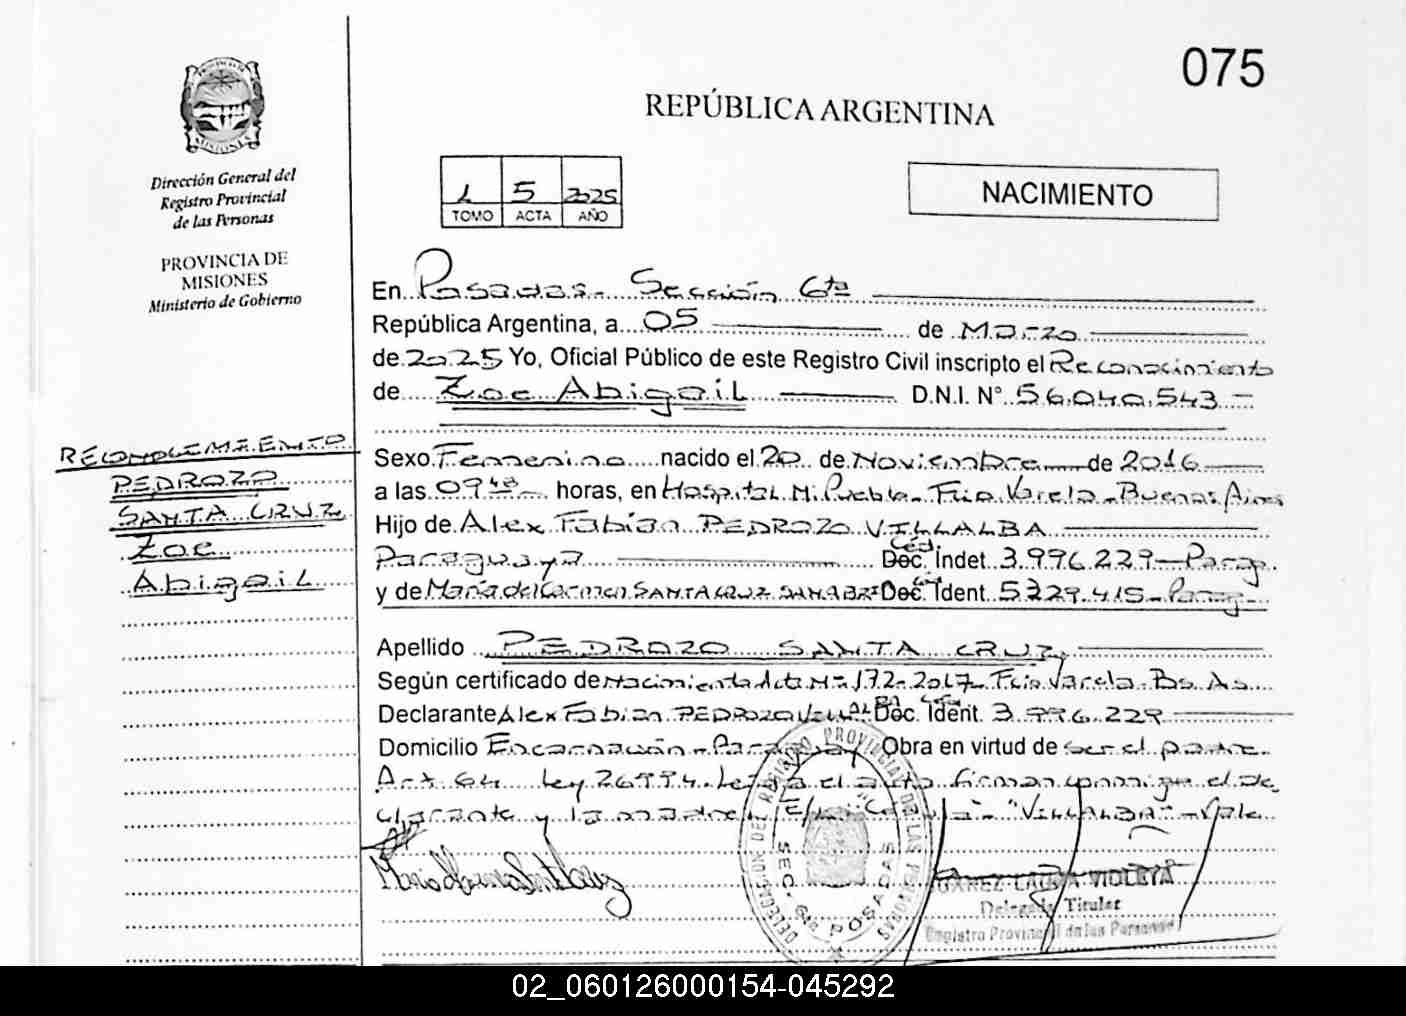 075
REPÚBLICA ARGENTINA
PROVINCIA DE
MISIONES
Dirección General del
Registro Provincial
de las Personas
PROVINCIA DE
MISIONES
Ministerio de Gobierno
1 5 2025
TOMO ACTA AÑO
NACIMIENTO
En Posadas - Sección 6ta
República Argentina, a 05 de Marzo
de 2025 Yo, Oficial Público de este Registro Civil inscripto el Reconocimiento
de Zoe Abigail D.N.I. N° 56.040.543
Sexo Femenino nacido el 20 de Noviembre de 2016
a las 09 horas, en Hospital M. Puebla - Flio Varela - Buenos Aires
Hijo de Alex Fabian PEDROZO VILLALBA
Paraguaya Doc. Ced. Indet 3.996.229 - Parag.
y de María del Carmen SANTA CRUZ Doc. Ced. Ident. 5.229.415 - Parag
Apellido PEDROZO SANTA CRUZ
Según certificado de Nacimiento Acta Nº 172-2017 Flio Varela - Bs. As
Declarante Alex Fabian PEDROZO VILLALBA Doc. Ced. Ident. 3.996.229
Domicilio Encarnación - Paraguay Obra en virtud de ser el padre.
Art 64 Ley 26994. Leída el acta firman conmigo el de
clarante y la madre. E/L: "Cédula" - "VILLALBA" - Vale
RECONOCIMIENTO
PEDROZO
SANTA CRUZ
Zoe
Abigail
DELEGACION DEL REGISTRO PROVINCIAL DE LAS PERSONAS
SEC. 6ta POSADAS
VIOLETA
Delegada Titular
Registro Provincial de las Personas
02_060126000154-045292